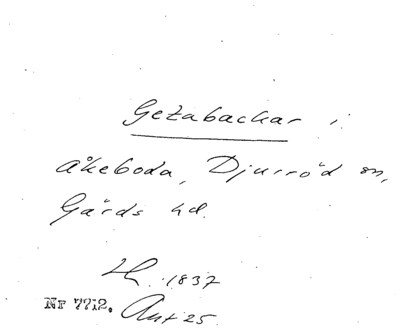 Getabackar i
Åkeboda, Djurröd sn,
Gärds hd.
LH. 1837
Nr 7712. Ant 25